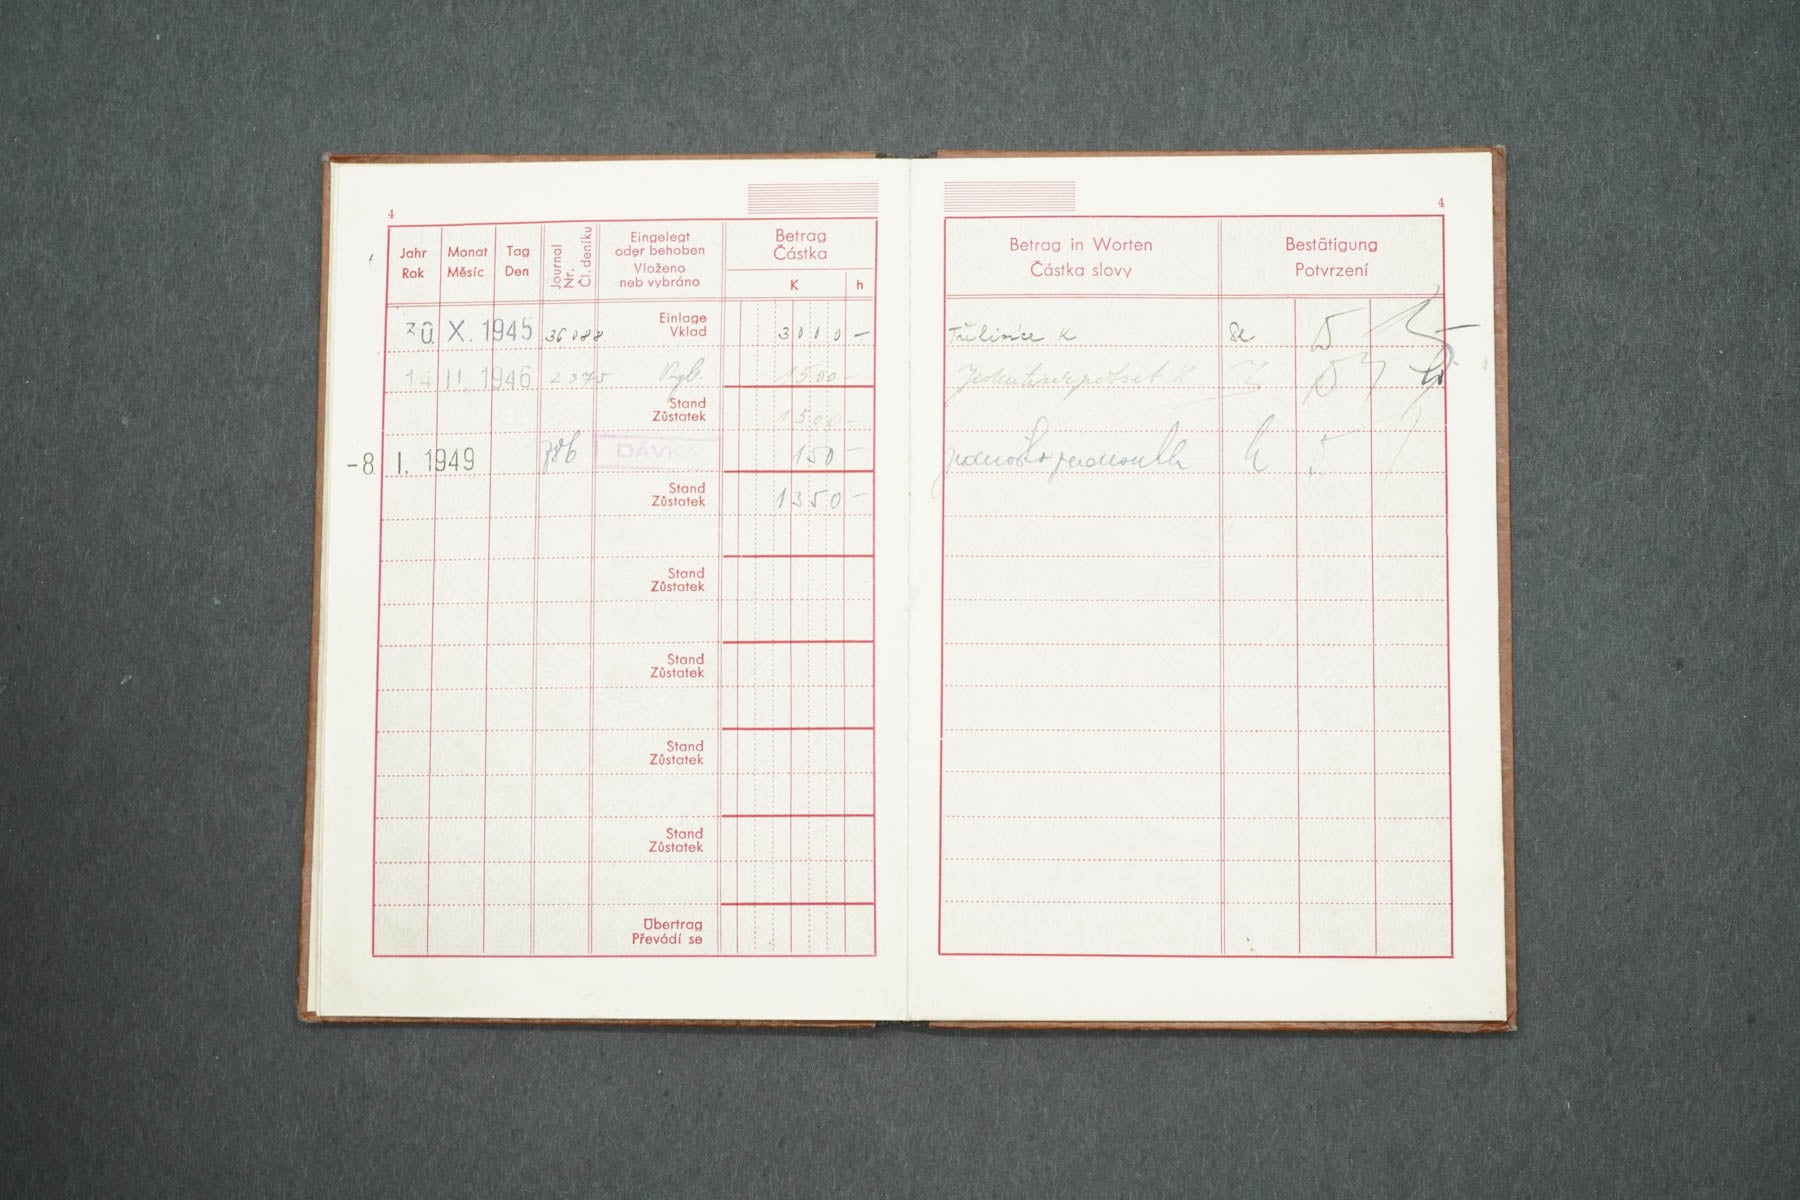 4
Jahr
Rok
Monat
Měsíc
Tag
Den
Journal
Nr.
Čl. deníku
Eingelegt
oder behoben
Vloženo
neb vybráno
Betrag
Částka
K h
20 X. 1945 36088 Einlage
Vklad 3000 —
14 II. 1946 2375 Vyb. 1500 —
Stand
Zůstatek 1500 —
-8 I. 1949 786 DÁVKA 150 —
Stand
Zůstatek 1350 —
Stand
Zůstatek
Stand
Zůstatek
Stand
Zůstatek
Stand
Zůstatek
Übertrag
Převádí se
4
Betrag in Worten
Částka slovy
Bestätigung
Potvrzení
Třitisíce K
Jedentisícpětset K